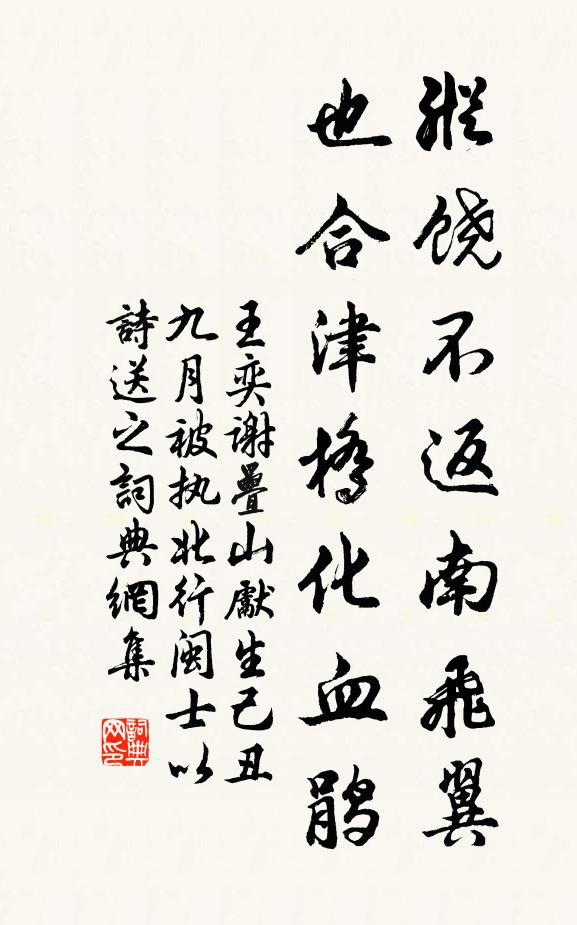 縱饶不返南飛翼
也合津橋化血鹃
王奕谢疊山獻生己丑
九月被执北行闽士以
詩送之詞典網集
詞典
网印